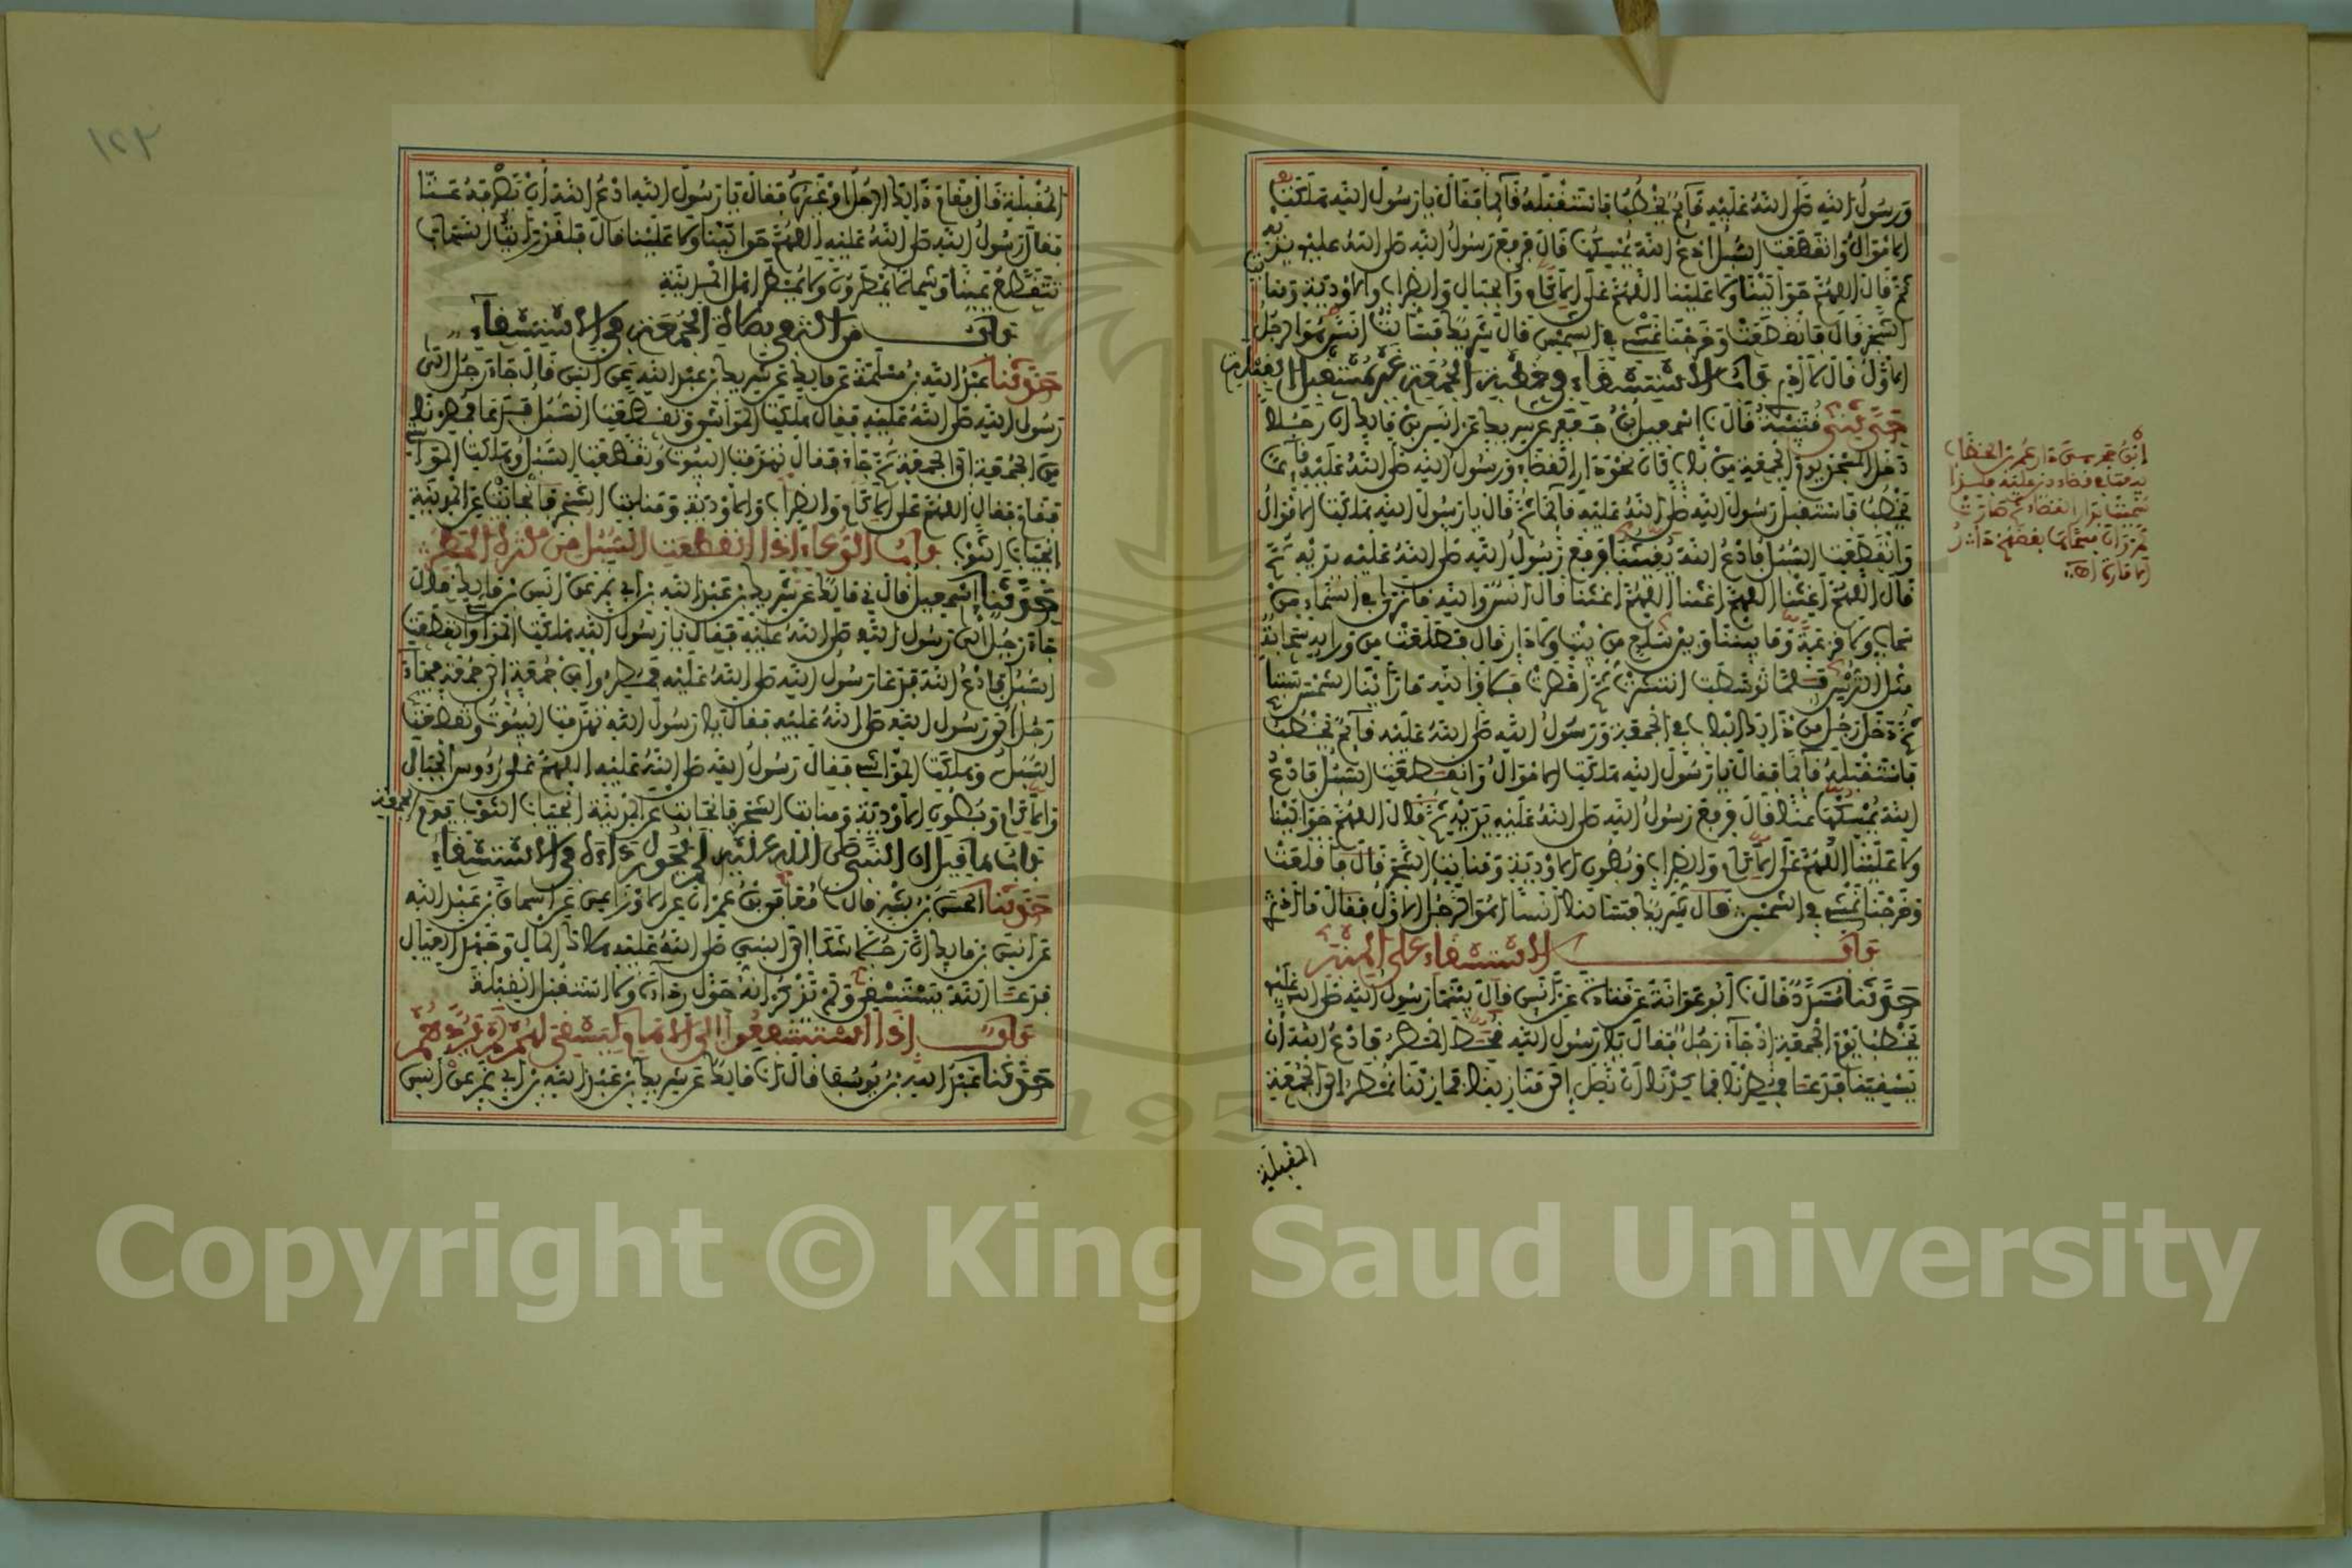 ورسول الله صلى الله عليه قائم يخطب فاستقبله قائما فقال يا رسول الله هلكت
الاموال وانقطعت السبل ادع الله يمسكها قال فرفع رسول الله صلى الله عليه يديه
ثم قال اللهم حوالينا ولا علينا اللهم على الاكام والجبال والظراب والاودية ومنابت
الشجر قال فانقطعت وخرجنا نمشي في الشمس قال شريك فسألت انسا هو الرجل
الاول قال لا ادري باب الاستسقاء في خطبة الجمعة غير مستقبل القبلة
حدثني قتيبة قال اسمعيل بن جعفر عن شريك عن انس بن مالك ان رجلا
دخل المسجد يوم الجمعة من باب كان نحو دار القضاء ورسول الله صلى الله عليه قائم
يخطب فاستقبل رسول الله صلى الله عليه قائما ثم قال يا رسول الله هلكت الاموال
وانقطعت السبل فادع الله يغيثنا فرفع رسول الله صلى الله عليه يديه ثم
قال اللهم اغثنا اللهم اغثنا اللهم اغثنا قال انس والله ما نرى في السماء من
سحاب ولا قزعة وما بيننا وبين سلع من بيت ولا دار قال فطلعت من ورائه سحابة
مثل الترس فلما توسطت انتشرت ثم امطرت فلا والله ما رأينا الشمس ستا
ثم دخل رجل من ذلك الباب في الجمعة ورسول الله صلى الله عليه قائم يخطب
فاستقبله قائما فقال يا رسول الله هلكت الاموال وانقطعت السبل فادع
الله يمسكها عنا قال فرفع رسول الله صلى الله عليه يديه ثم قال اللهم حوالينا
ولا علينا اللهم على الاكام والظراب وبطون الاودية ومنابت الشجر قال فاقلعت
وخرجنا نمشي في الشمس قال شريك فسالت انسا اهو الرجل الاول فقال ما ادري
باب الاستسقاء على المنبر
حدثنا مسدد قال ابو عوانة عن قتادة عن انس قال بينما رسول الله صلى الله عليه
يخطب يوم الجمعة اذ جاء رجل فقال يا رسول الله قحط المطر فادع الله ان
يسقينا فدعا فمطرنا فما كدنا ان نصل الى منازلنا فما زلنا نمطر الى الجمعة
المقبلة
ابن حجر
١٢٣
المقبلة قال فقام ذلك الرجل او غيره فقال يا رسول الله ادع الله ان يصرفه عنا
فقال رسول الله صلى الله عليه اللهم حوالينا ولا علينا قال فلقد رايت السحاب
يتقطع يمينا وشمالا يمطرون ولا يمطر اهل المدينة
باب من اكتفى بصلاة الجمعة في الاستسقاء
حدثنا عبد الله بن مسلمة عن مالك عن شريك بن عبد الله عن انس قال جاء رجل الى
رسول الله صلى الله عليه فقال هلكت المواشي وتقطعت السبل فدعا فمطرنا
من الجمعة الى الجمعة ثم جاء فقال تهدمت البيوت وتقطعت السبل وهلكت المواشي
فقام فقال اللهم على الاكام والظراب والاودية ومنابت الشجر فانجابت عن المدينة
انجياب الثوب باب الدعاء اذا انقطعت السبل من كثرة المطر
حدثنا اسمعيل قال ني مالك عن شريك بن عبد الله بن ابي نمر عن انس بن مالك قال
جاء رجل الى رسول الله صلى الله عليه فقال يا رسول الله هلكت المواشي وانقطعت
السبل فادع الله فدعا رسول الله صلى الله عليه فمطروا من جمعة الى جمعة فجاء
رجل الى رسول الله صلى الله عليه فقال يا رسول الله تهدمت البيوت وتقطعت
السبل وهلكت المواشي فقال رسول الله صلى الله عليه اللهم على رءوس الجبال
والاكام وبطون الاودية ومنابت الشجر فانجابت عن المدينة انجياب الثوب
باب ما قيل ان النبي صلى الله عليه لم يحول رداءه في الاستسقاء يوم الجمعة
حدثنا الحسن بن بشر قال معافى بن عمران عن الاوزاعي عن اسحاق بن عبد الله
عن انس بن مالك ان رجلا شكا الى النبي صلى الله عليه هلاك المال وجهد العيال
فدعا الله يستسقي ولم يذكر انه حول رداءه ولا استقبل القبلة
باب اذا استشفعوا الى الامام ليستسقي لهم لم يردهم
حدثنا عبد الله بن يوسف قال مالك عن شريك بن عبد الله بن ابي نمر عن انس
Copyright © King Saud University
195